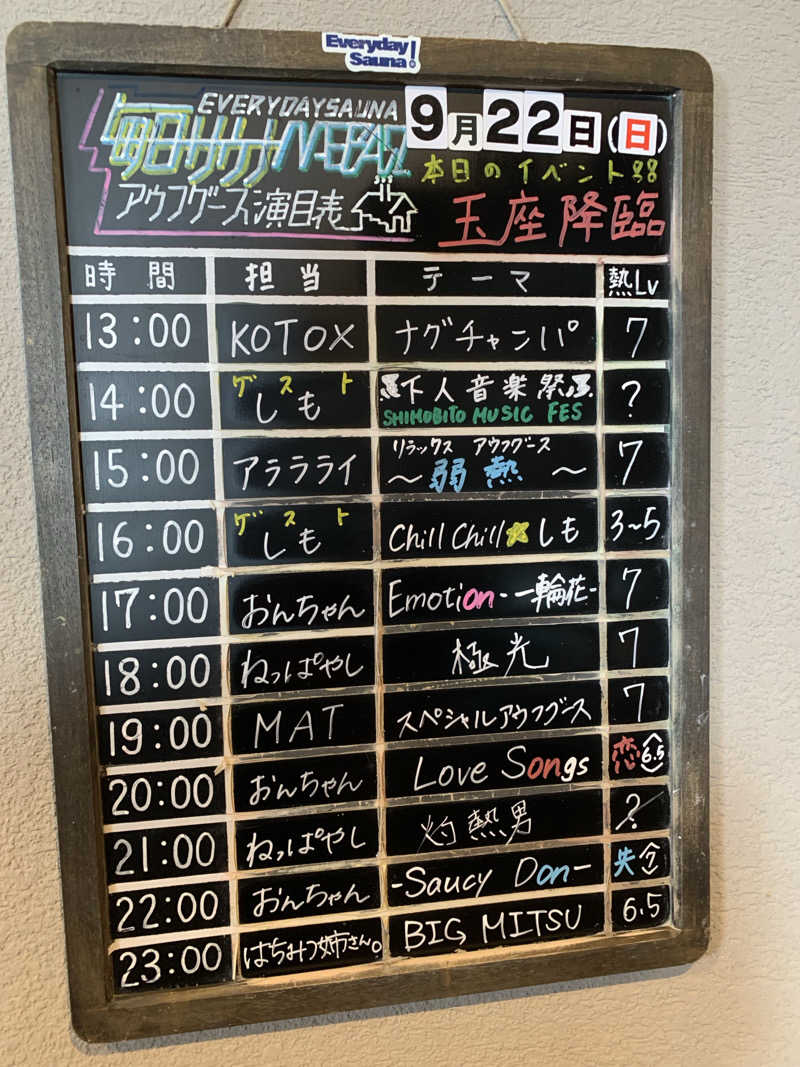 Everyday Sauna!
EVERYDAYSAUNA
毎日サウナ
アウフグース演目表
9月22日(日)
本日のイベント
玉座降臨
時間 担当 テーマ 熱Lv
13:00 KOTOX ナグチャンパ 7
14:00 ゲスト しも 下人音楽祭 SHIMOBITO MUSIC FES ?
15:00 アララライ リラックス アウフグース ～弱熱～ 7
16:00 ゲスト しも Chill Chill☆しも 3~5
17:00 おんちゃん Emotion-一輪花- 7
18:00 ねっぱやし 極光 7
19:00 MAT スペシャルアウフグース 7
20:00 おんちゃん Love Songs 恋 6.5
21:00 ねっぱやし 灼熱男 ?
22:00 おんちゃん -Saucy Don- 失
23:00 はちみつ姉さん。 BIG MITSU 6.5